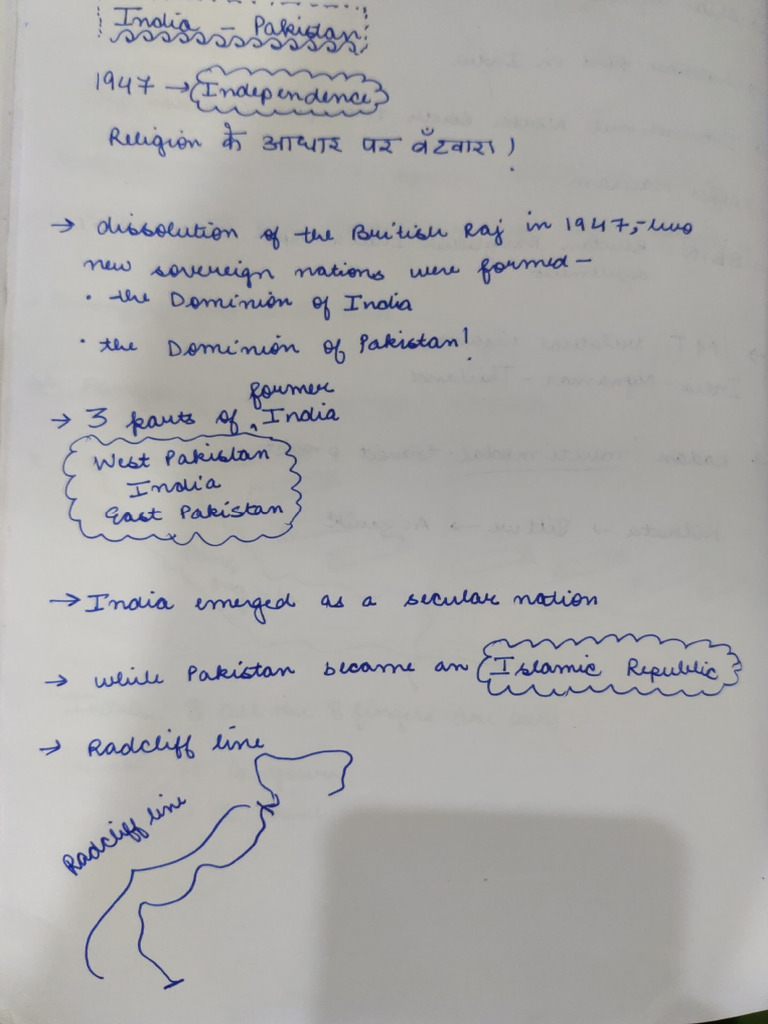 India - Pakistan
1947 → Independence
Religion के आधार पर बँटवारा!
→ dissolution of the British Raj in 1947, two
new sovereign nations were formed -
• the Dominion of India
• the Dominion of Pakistan!
former
→ 3 parts of ‸ India
West Pakistan
India
East Pakistan
→ India emerged as a secular nation
→ while Pakistan became an Islamic Republic
→ Radcliff line
Radcliff line